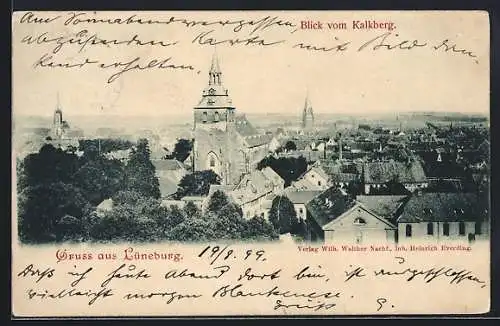 Am Sonnabend vergessen
Blick vom Kalkberg.
abzusenden. Karte mit Bild den
kend erhalten.
Gruss aus Lüneburg.
19/8 99
Verlag Wilh. Walther Nachf., Inh. Heinrich Everding.
Daß ich heute Abend dort bin, ist ausgeschlossen,
vielleicht morgen Blankenese.
Gruß